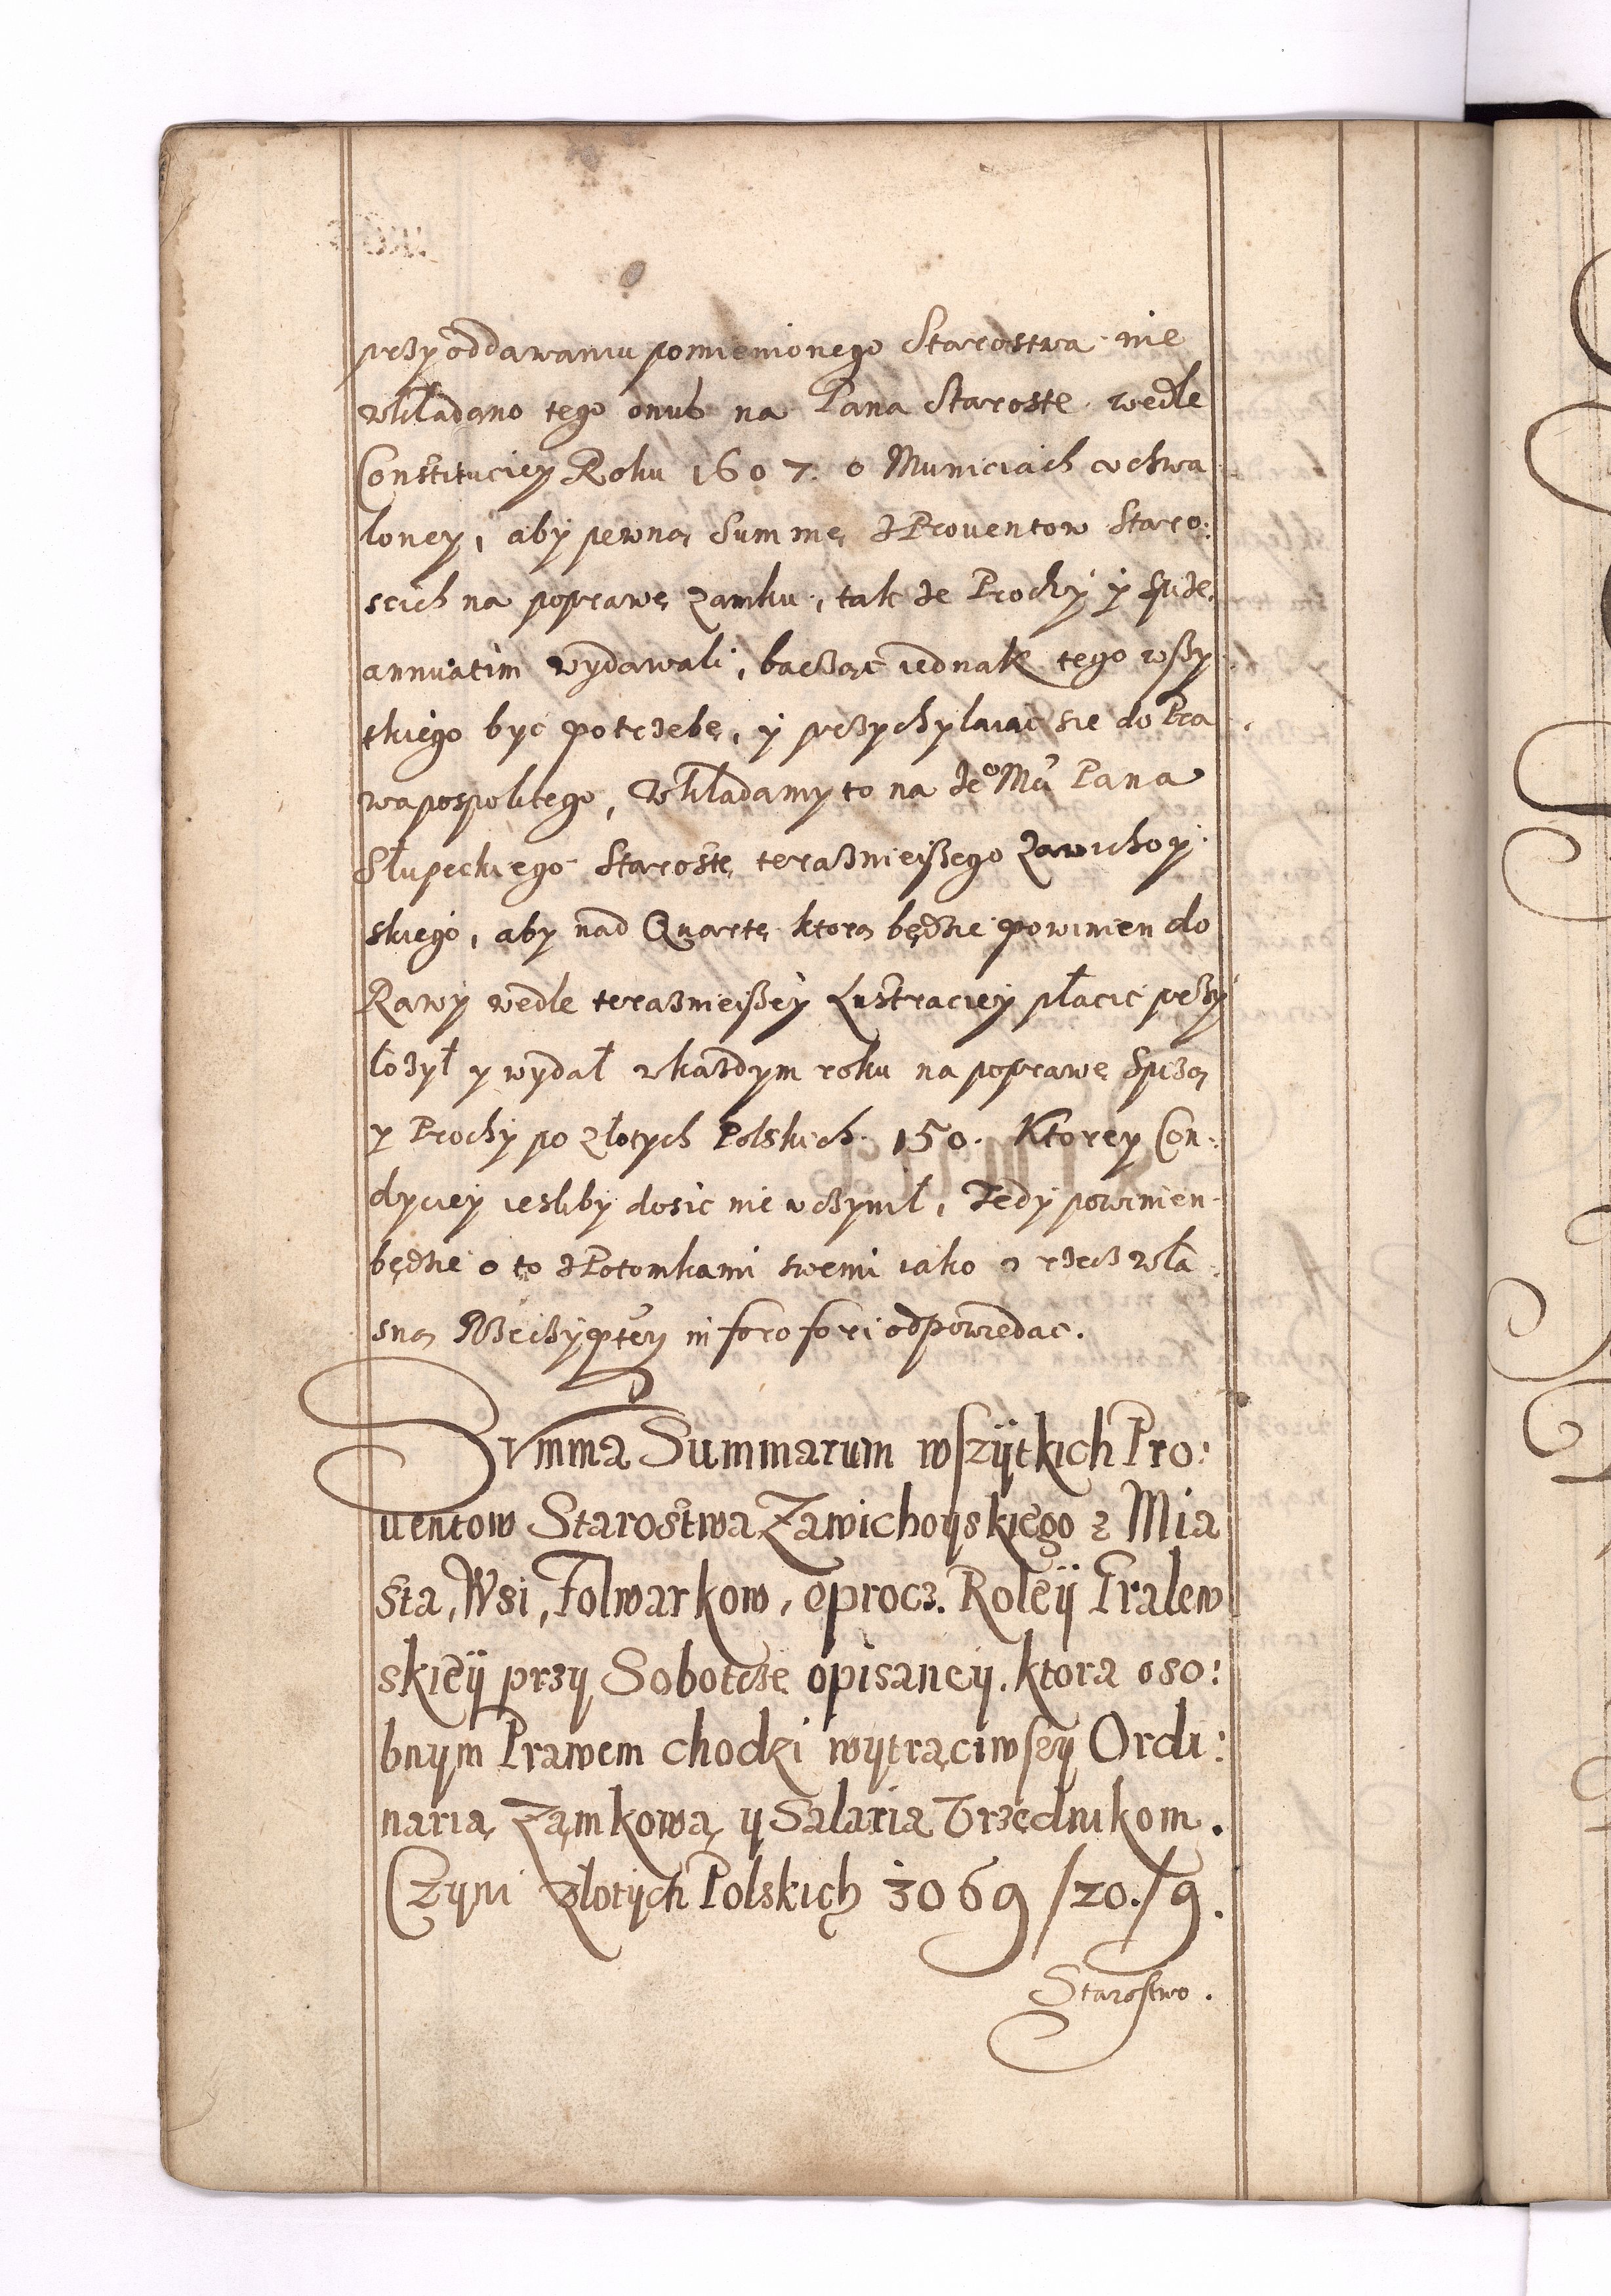 przy oddawaniu pomienionego Starostwa nie
wkładano tego onus na Pana Starostę wedle
Constituciey Roku 1607. o Municiach vchwa
loney, aby pewną Summę z Prouentow Staro:
scich na poprawę zamku, tak ze Prochy y spize
annuatim wydawali, bacząc iednak tego wszy
tkiego byc potrzebę, y przychylaiąc się do Pra
wa pospolitego, wkładamy to na Jeo Mci Pana
Słupeckiego Starostę terasznieiszego Zawichoy
skiego, aby nad Quartę ktorą będzie powinien do
Rawy wedle terasznieiszey Lustraciey płacic przy
łozył y wydał wkaszdym roku na poprawę Spizą
y Prochy po złotych Polskich 150. Ktorey Con:
dyciey iesliby dosic nie vczynił, Tedy powinien
będzie o to z Potomkami swemi iako o rzecz wła
sną Rzeczyptey in foro fori odpowiedac.
Svmma Summarum wszÿtkich Pro:
uentow Starostwa Zawichoyskiego z Mia
sta, Wsi, Folwarkow, oprocz. Roleÿ Pralew
skieÿ przy Sobotcze opisaney. ktora oso:
bnym Prawem chodzi wytrąciwszy Ordi:
narią Zamkową y Salaria Vrzędnikom.
Czyni złotych Polskich 3069/20./9.
Starostwo.